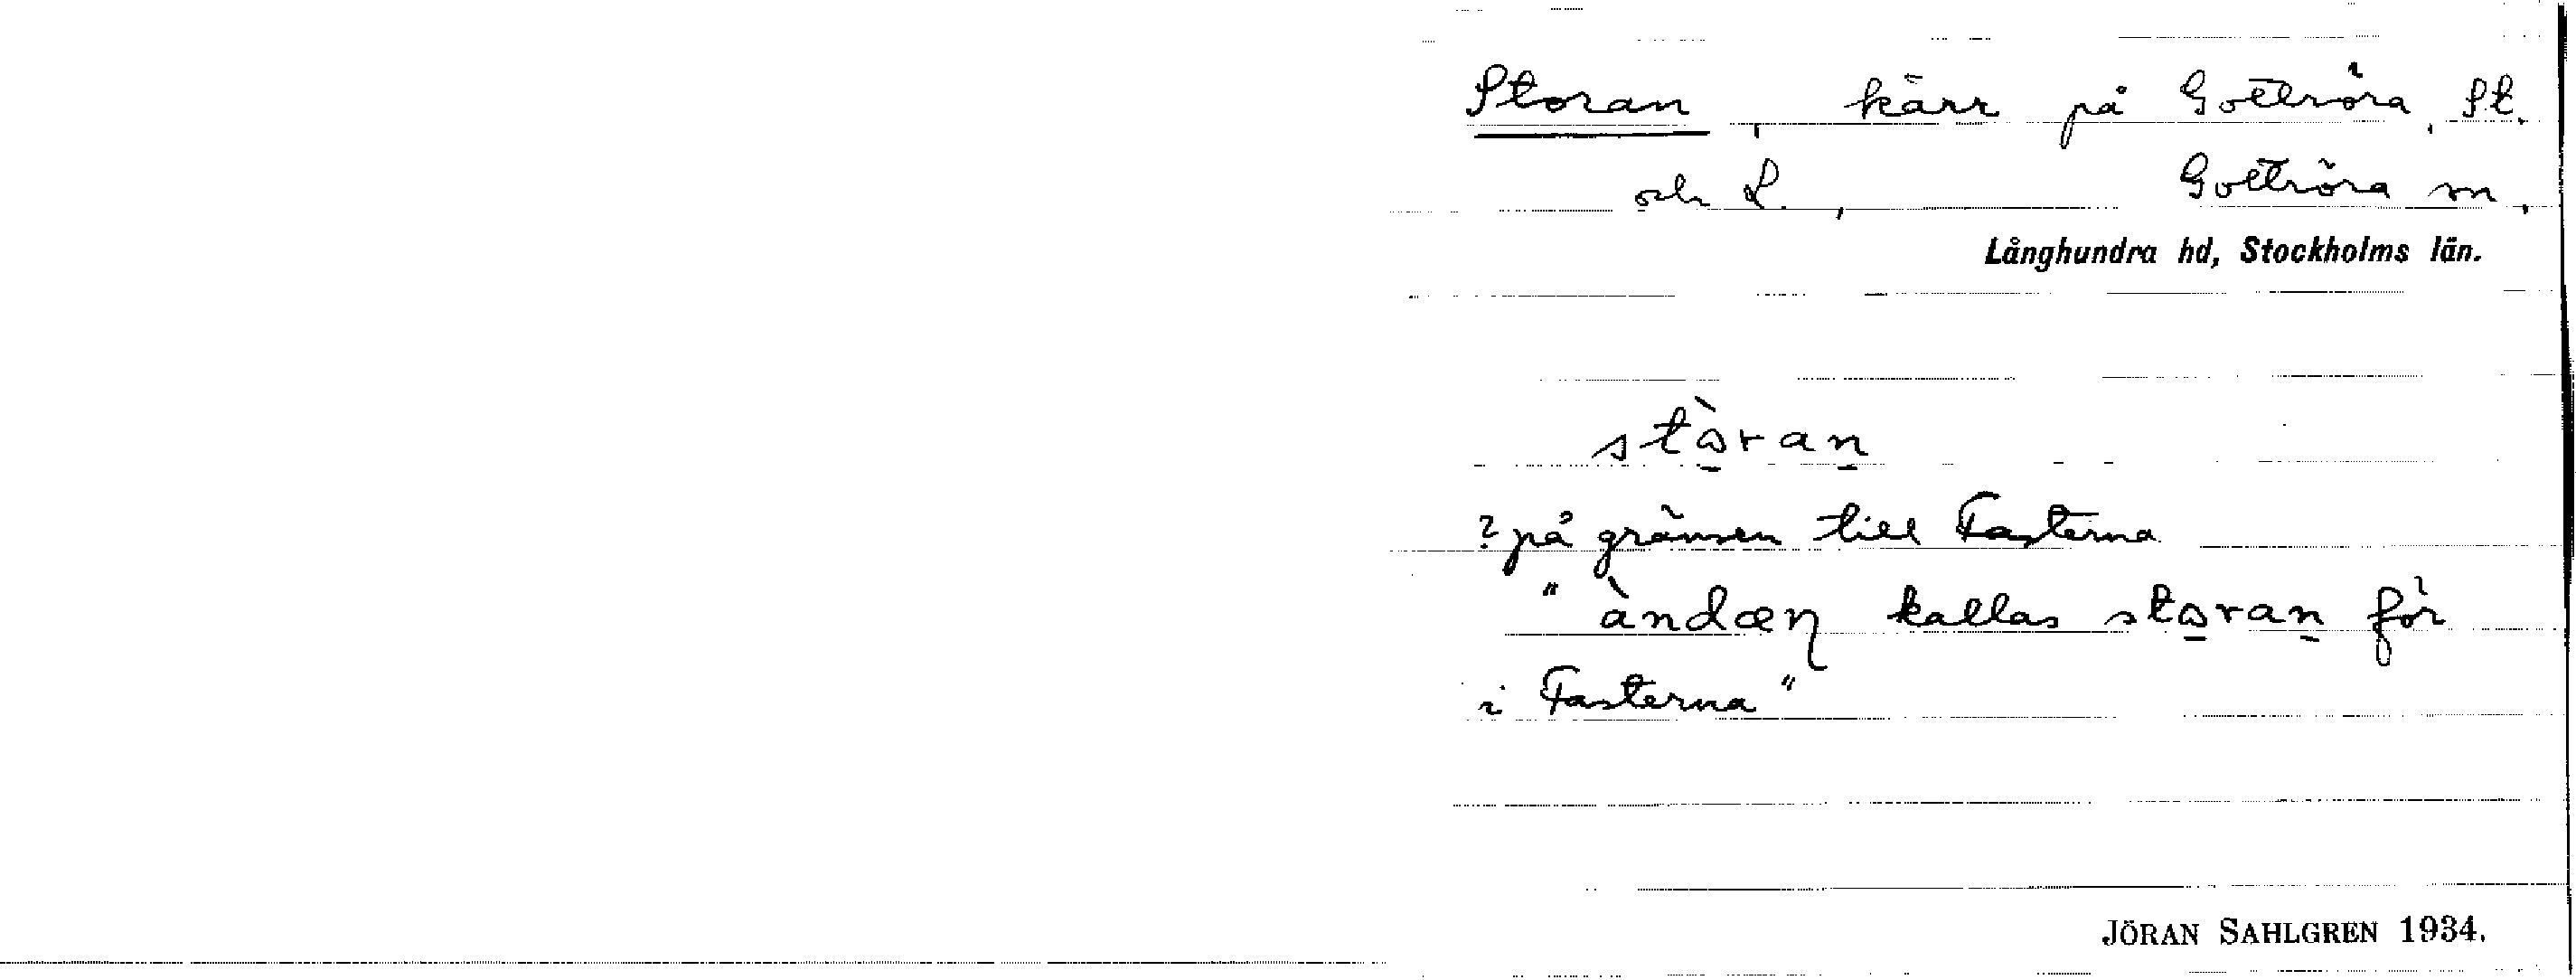 Storan, kärr på Gottröra, St.
och L., Gottröra sn,
Långhundra hd, Stockholms län.
stòran
? på gränsen till Fasterna
"àndæn kallas storan för
i Fasterna"
JÖRAN SAHLGREN 1934.